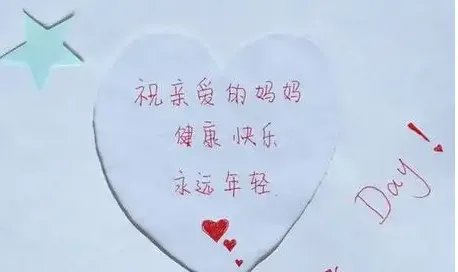 祝亲爱的妈妈
健康快乐
永远年轻
Day!